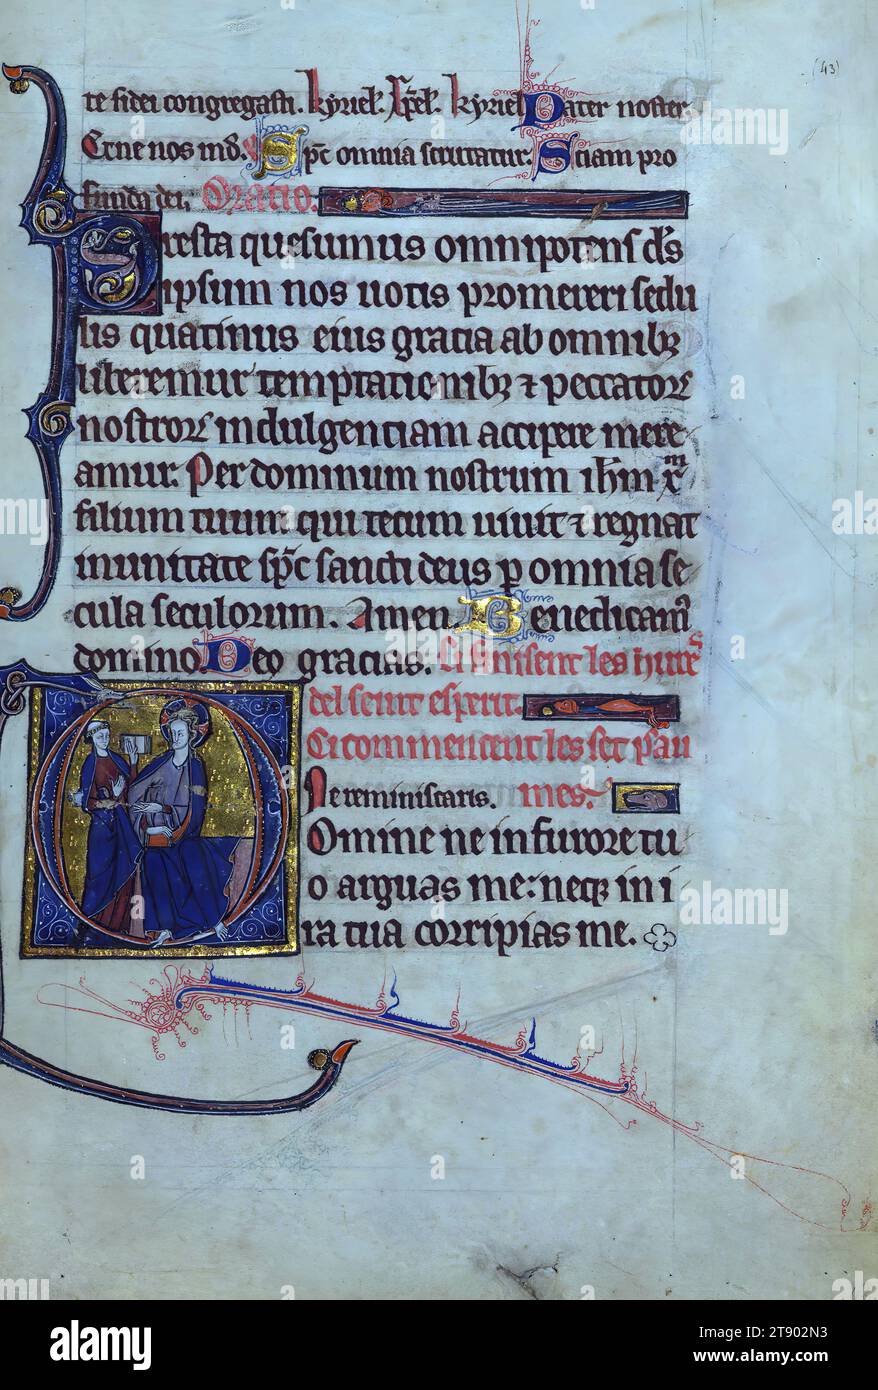 (43)
te fidei congregasti. kyriel. Xpel. kyriel. Pater noster.
Et ne nos īnd. Spc omnia scrutatur. Etiam pro
funda dei. Oratio.
Presta quesumus omnipotens ds
ipsum nos uotis promereri sedu
lis quatinus eius gracia ab omnibꝫ
liberemur temptationibꝫ ⁊ peccatoꝝ
nostroꝝ indulgenciam accipere mere
amur. Per dominum nostrum ihm xm
filium tuum qui tecum uiuit ⁊ regnat
in unitate spc sancti deus p omnia se
cula seculorum. Amen. Benedicam
domino Deo gracias. Ci finisent les hures
del seint esperit.
Ci commencent les set psau
Ne reminiscaris. mes.
Domine ne in furore tu
o arguas me: neqꝫ in i
ra tua corripias me.
alamy
Image ID: 2T902N3
www.alamy.com